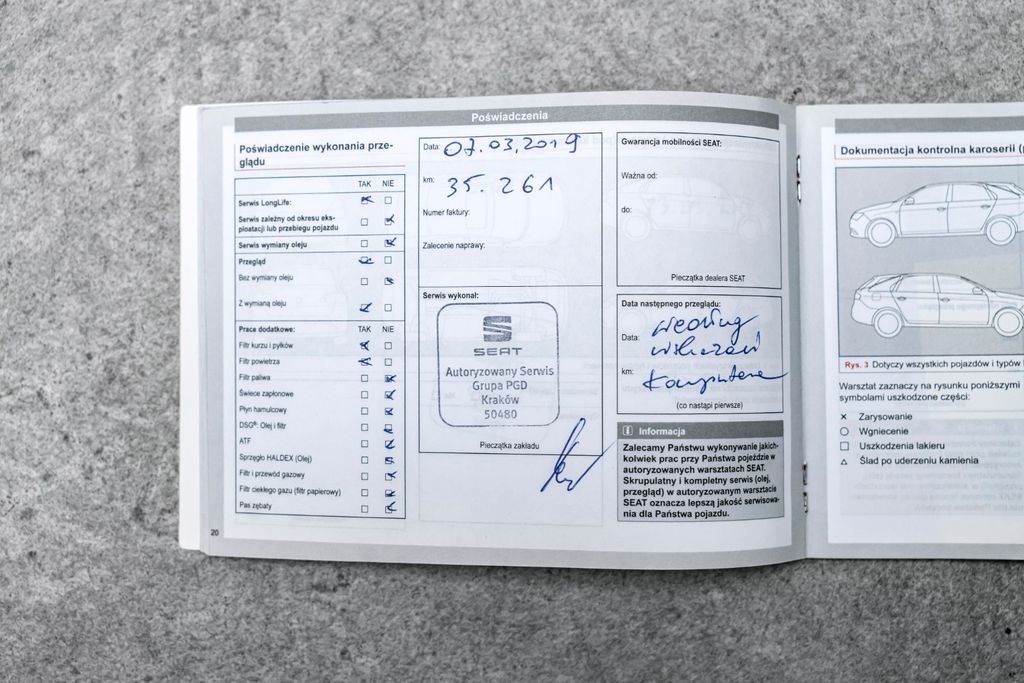 Poświadczenia
Poświadczenie wykonania prze-
glądu
TAK NIE
Serwis LongLife:
Serwis zależny od okresu eks-
ploatacji lub przebiegu pojazdu
Serwis wymiany oleju
Przegląd
Bez wymiany oleju
Z wymianą oleju
Prace dodatkowe: TAK NIE
Filtr kurzu i pyłków
Filtr powietrza
Filtr paliwa
Świece zapłonowe
Płyn hamulcowy
DSG®: Olej i filtr
ATF
Sprzęgło HALDEX (Olej)
Filtr i przewód gazowy
Filtr ciekłego gazu (filtr papierowy)
Pas zębaty
20
Data: 07.03.2019
km: 35.261
Numer faktury:
Zalecenie naprawy:
Serwis wykonał:
SEAT
Autoryzowany Serwis
Grupa PGD
Kraków
50480
Pieczątka zakładu
Gwarancja mobilności SEAT:
Ważna od:
do:
Pieczątka dealera SEAT
Data następnego przeglądu:
Data: według
wskazań
km: komputera
(co nastąpi pierwsze)
i Informacja
Zalecamy Państwu wykonywanie jakich-
kolwiek prac przy Państwa pojeździe w
autoryzowanych warsztatach SEAT.
Skrupulatny i kompletny serwis (olej,
przegląd) w autoryzowanym warsztacie
SEAT oznacza lepszą jakość serwisowa-
nia dla Państwa pojazdu.
Dokumentacja kontrolna karoserii (
Rys. 3 Dotyczy wszystkich pojazdów i typów
Warsztat zaznaczy na rysunku poniższymi
symbolami uszkodzone części:
× Zarysowanie
○ Wgniecenie
□ Uszkodzenia lakieru
△ Ślad po uderzeniu kamienia